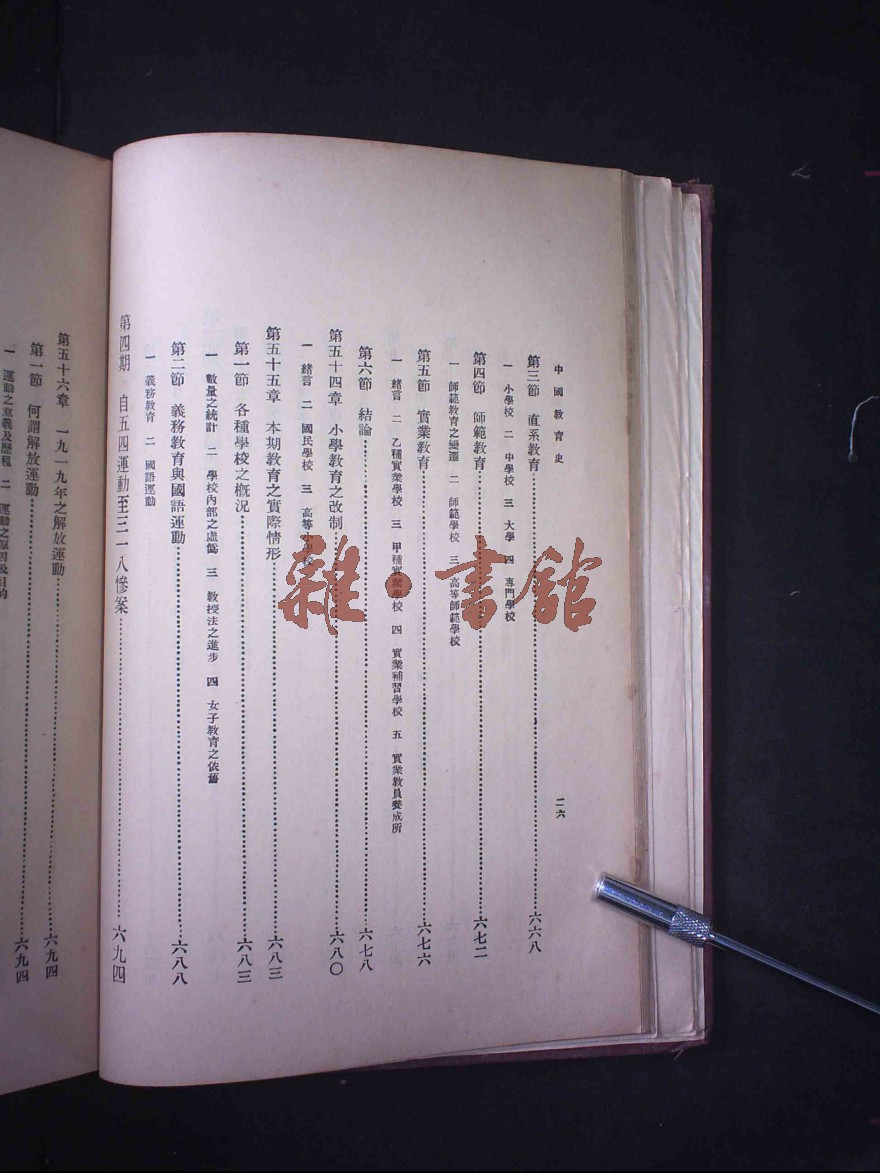 中國教育史
二六
第三節 直系教育 六六八
一 小學校 二 中學校 三 大學 四 專門學校
第四節 師範教育 六七二
一 師範教育之變遷 二 師範學校 三 高等師範學校
第五節 實業教育 六七六
一 緒言 二 乙種實業學校 三 甲種實業學校 四 實業補習學校 五 實業教員養成所
第六節 結論 六七八
第五十四章 小學教育之改制 六八〇
一 緒言 二 國民學校 三 高等小學校
第五十五章 本期教育之實際情形 六八三
第一節 各種學校之概況 六八三
一 數量之統計 二 學校內部之虛僞 三 教授法之進步 四 女子教育之依舊
第二節 義務教育與國語運動 六八八
一 義務教育 二 國語運動
第四期 自五四運動至三一八慘案 六九四
第五十六章 一九一九年之解放運動 六九四
第一節 何謂解放運動 六九四
一 運動之意義及歷程 二 運動之原因及目的
雜·書館